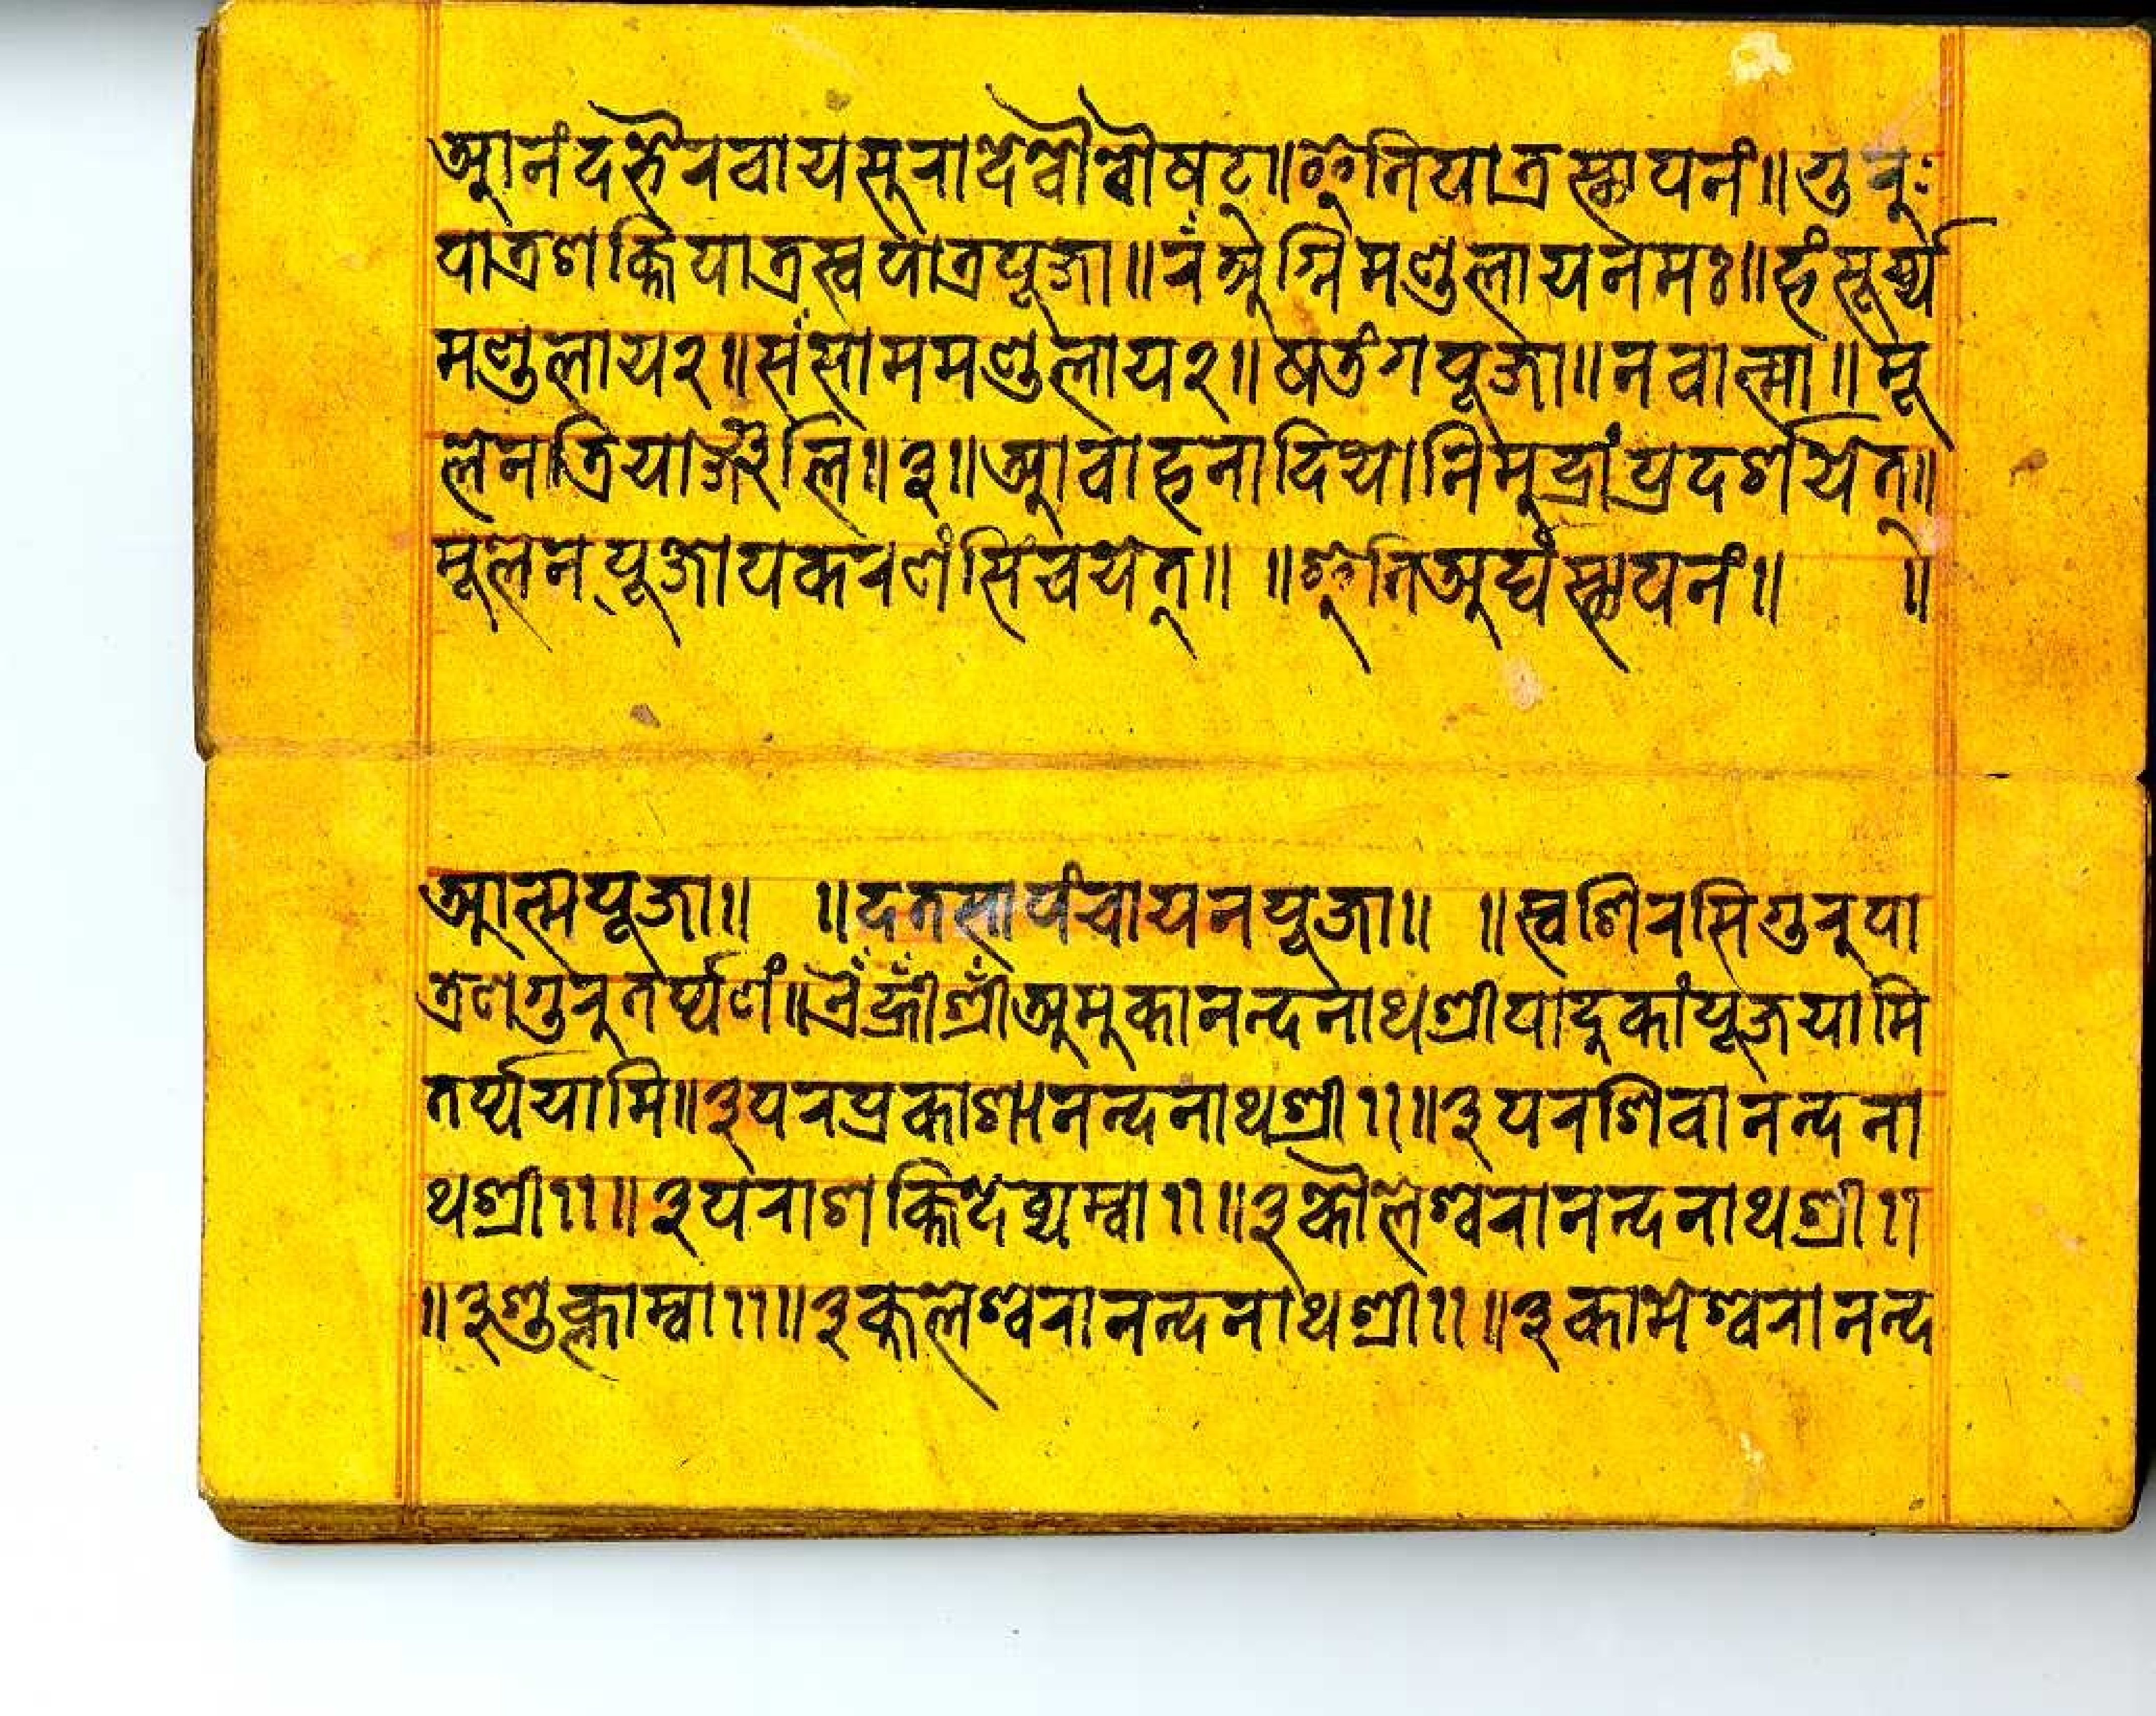 आनंदभैरवायसुरादेव्यौवौषट्॥ इतिपात्रस्थापनं॥ गुरुः
पात्रशक्तिपात्रस्वपात्रपूजा॥ रं अग्निमण्डलायनमः॥ हं सूर्य्य
मण्डलाय२॥ सं सोममण्डलाय२॥ षडंगपूजा॥ नवात्मा॥ मू
लेनत्रियाञ्जलि॥ ३॥ आवाहनादियोनिमुद्रांप्रदर्शयेत्॥
मूलेनपूजोपकरणंसिंचयेत्॥ ॥ इतिअर्घ्यस्थापनं॥ ॥
आत्मपूजा॥ ॥ दतसापंचायनपूजा॥ ॥ स्वशिरसिगुरुपा
त्रेणगुरुतर्प्पणं॥ ऐँह्रीँश्रीँअमुकानन्दनाथश्रीपादुकांपूजयामि
तर्प्पयामि॥ ३ परप्रकाशानन्दनाथश्री११॥ ३ परशिवानन्दना
थश्री११॥ ३ पराशक्तिदेव्यम्बा११॥ ३ कौलेश्वरानन्दनाथश्री११
॥ ३ शुक्लाम्बा११॥ ३ कुलेश्वरानन्दनाथश्री११॥ ३ कामेश्वरानन्द